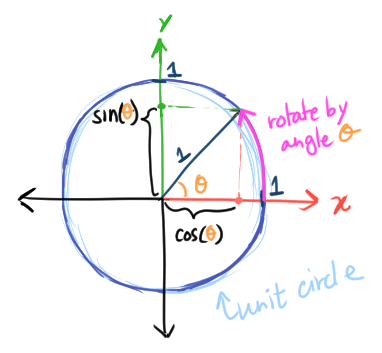 y
1
sin(θ)
rotate by
angle θ
1
θ
1
x
cos(θ)
unit circle